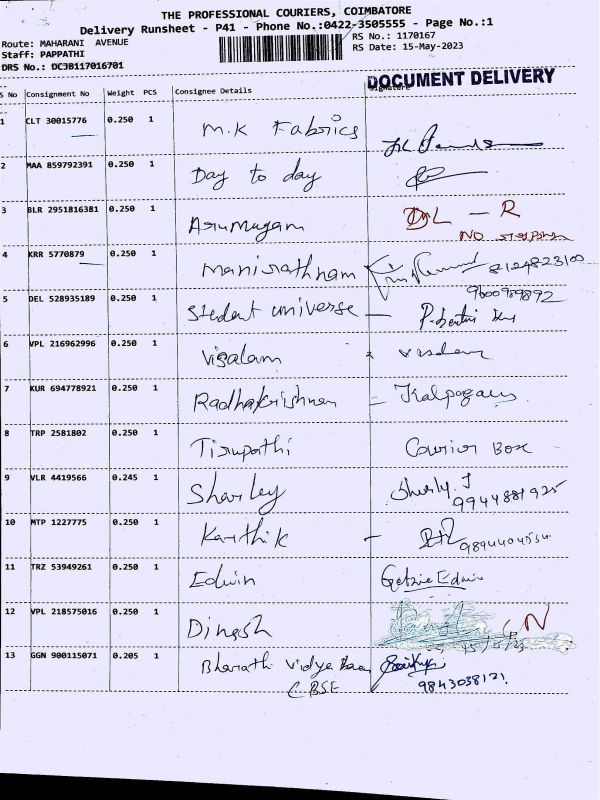 THE PROFESSIONAL COURIERS, COIMBATORE
Delivery Runsheet - P41 - Phone No.:0422-3505555 - Page No.:1
Route: MAHARANI AVENUE RS No.: 1170167
Staff: PAPPATHI RS Date: 15-May-2023
DRS No.: DCJB117016701
DOCUMENT DELIVERY
S No Consignment No Weight PCS Consignee Details Signature
1 CLT 30015776 0.250 1 M.K Fabrics
2 MAA 859792391 0.250 1 Day to day
3 BLR 2951816381 0.250 1 Arumugam DL - R
NO
4 KRR 5770879 0.250 1 Manirathnam 8124823100
9600989892
5 DEL 528935189 0.250 1 Student universe -
6 VPL 216962996 0.250 1 Visalam
7 KUR 694778921 0.250 1 Radhakrishnan -
8 TRP 2581802 0.250 1 Tirupathi Courier Box
9 VLR 4419566 0.245 1 Sharley Sherly. J
9944881925
10 MTP 1227775 0.250 1 Karthik -
11 TRZ 53949261 0.250 1 Edwin Getzie Edwin
12 VPL 218575016 0.250 1 Dinesh
15/5/23
13 GGN 900115071 0.205 1 Bharath Vidya
CBSE 9843038121.